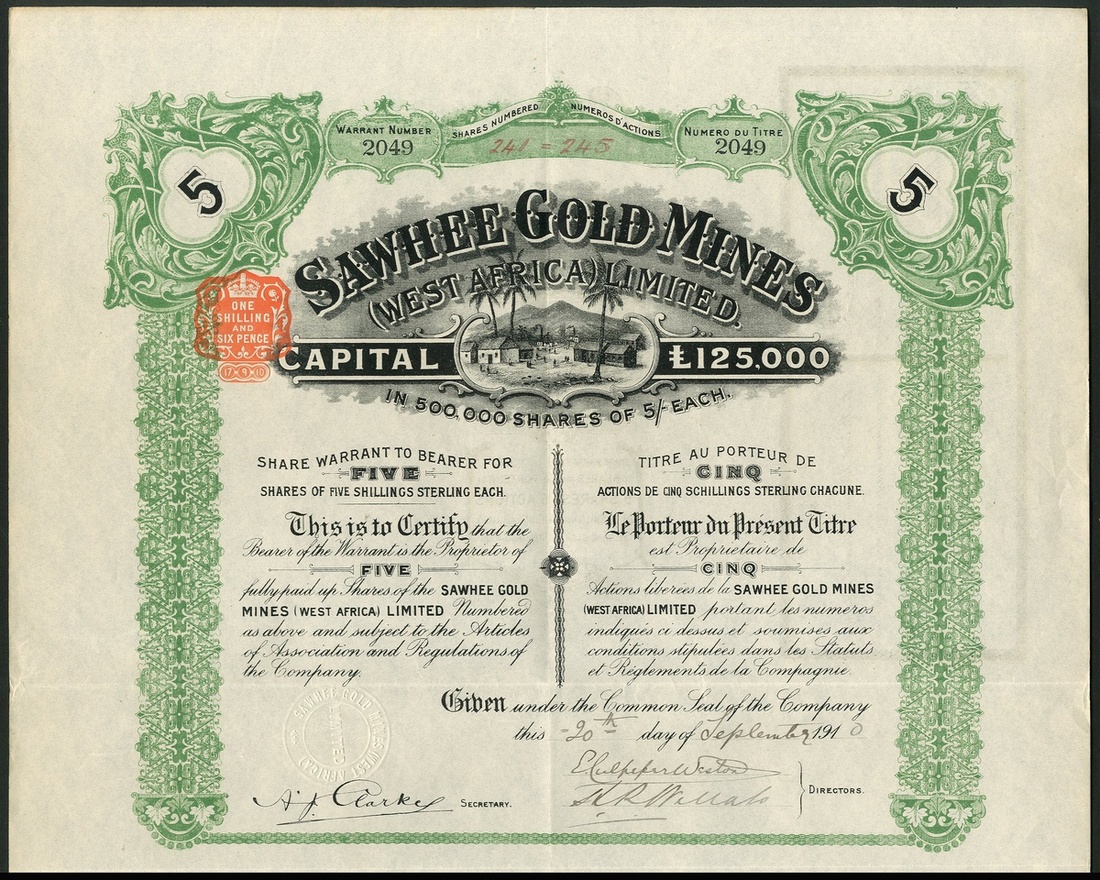 WARRANT NUMBER
2049
SHARES NUMBERED NUMEROS D'ACTIONS
241 = 245
NUMERO DU TITRE
2049
5
5
SAWHEE GOLD MINES
(WEST AFRICA) LIMITED.
ONE
SHILLING
AND
SIX PENCE
17 9 10
CAPITAL £125,000
IN 500,000 SHARES OF 5/- EACH.
SHARE WARRANT TO BEARER FOR
FIVE
SHARES OF FIVE SHILLINGS STERLING EACH.
This is to Certify that the
Bearer of the Warrant is the Proprietor of
FIVE
fully paid up Shares of the SAWHEE GOLD
MINES (WEST AFRICA) LIMITED Numbered
as above and subject to the Articles
of Association and Regulations of
the Company.
TITRE AU PORTEUR DE
CINQ
ACTIONS DE CINQ SCHILLINGS STERLING CHACUNE.
Le Porteur du Présent Titre
est Proprietaire de
CINQ
Actions liberées de la SAWHEE GOLD MINES
(WEST AFRICA) LIMITED portant les numeros
indiqués ci dessus et soumises aux
conditions stipulées dans les Statuts
et Réglements de la Compagnie.
Given under the Common Seal of the Company
this 20th day of September 1910
SAWHEE GOLD MINES (WEST AFRICA)
LIMITED
A. J. Clarke SECRETARY.
DIRECTORS.